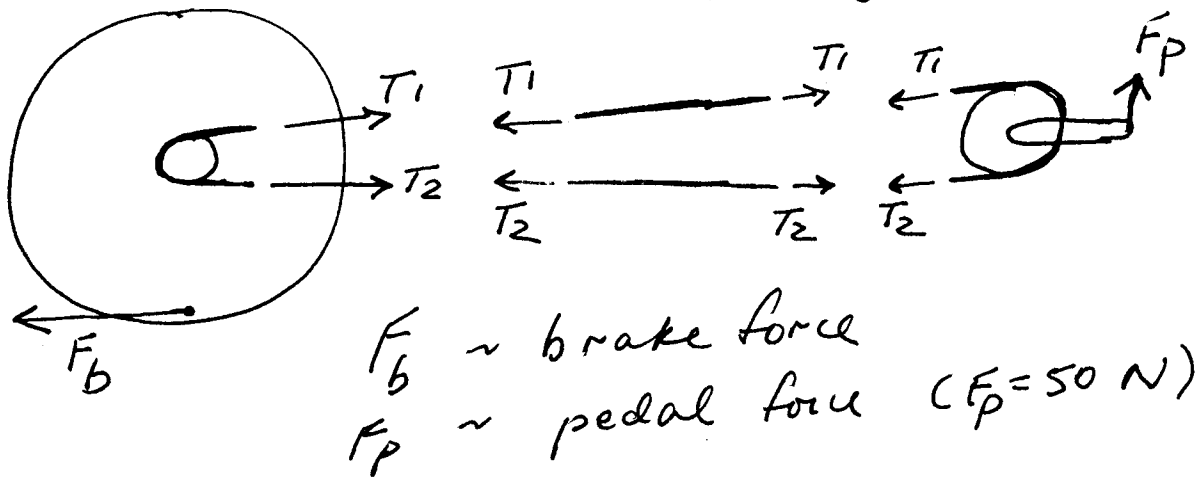 T1 T1 T1 T1 Fp
T2 T2 T2 T2
Fb
Fb ~ brake force
Fp ~ pedal force (Fp = 50 N)